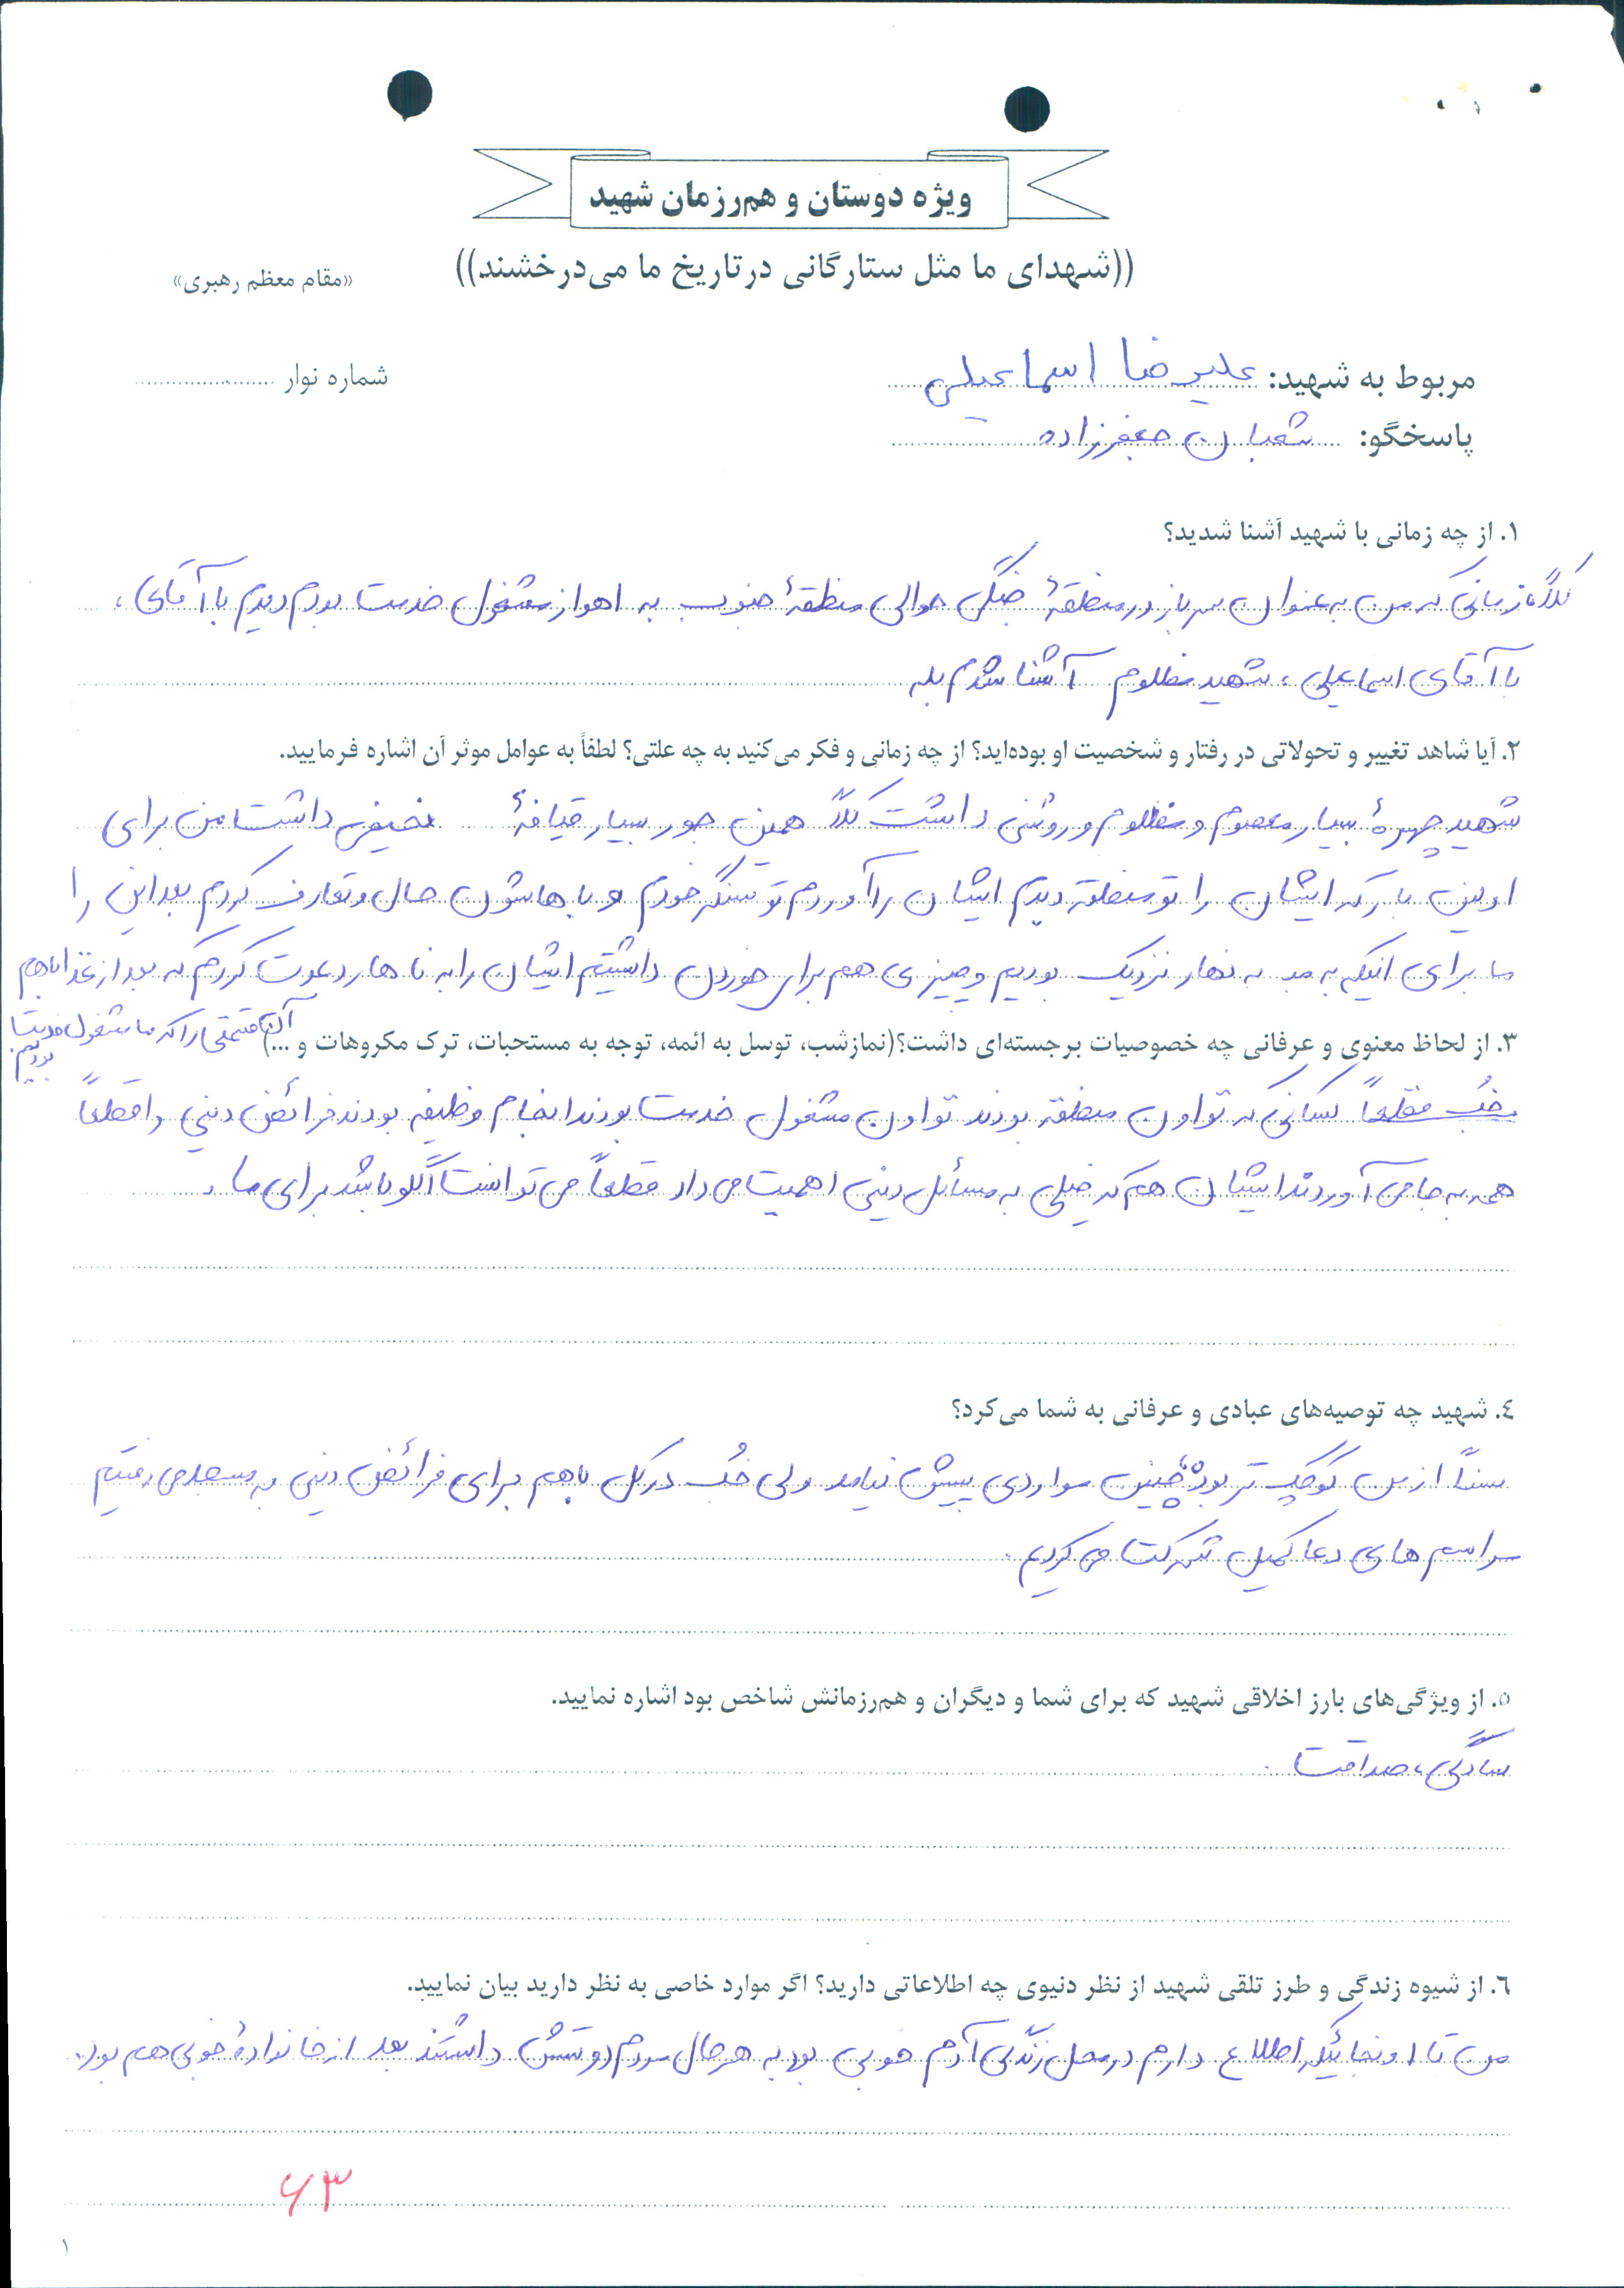 ویژه دوستان و هم‌رزمان شهید
((شهدای ما مثل ستارگانی در تاریخ ما می‌درخشند))
«مقام معظم رهبری»
مربوط به شهید: علیرضا اسماعیلی
شماره نوار
پاسخگو: شعبان جعفرزاده
۱. از چه زمانی با شهید آشنا شدید؟
کلاً زمانی که من به عنوان سرباز در منطقهٔ جنگی حوالی منطقهٔ جنوب به اهواز مشغول خدمت بودم دیدم با آقای،
با آقای اسماعیلی، شهید مظلوم آشنا شدم بله
۲. آیا شاهد تغییر و تحولاتی در رفتار و شخصیت او بوده‌اید؟ از چه زمانی و فکر می‌کنید به چه علتی؟ لطفاً به عوامل موثر آن اشاره فرمایید.
شهید چهرهٔ بسیار معصوم و مظلوم و روشنی داشت کلاً همین جور بسیار قیافهٔ نحیفی داشت من برای
اولین بار که ایشان را تو منطقه دیدم ایشان را آوردم تو سنگر خودم و باهاشون حال و تعارف کردم بعد این را
ما برای اینکه به نهار نزدیک بودیم و چیزی هم برای خوردن داشتیم ایشان را به ناهار دعوت کردم که بعد از غذا باهم
آن قسمتی را که ما مشغول خدمت
بودیم.
۳. از لحاظ معنوی و عرفانی چه خصوصیات برجسته‌ای داشت؟(نمازشب، توسل به ائمه، توجه به مستحبات، ترک مکروهات و ...)
خُب قطعاً کسانی که تو اون منطقه بودند تو اون مشغول خدمت بودند انجام وظیفه بودند فرائض دینی را قطعاً
همه به جا می آوردند ایشان هم که خیلی به مسائل دینی اهمیت می داد قطعاً می توانست الگو باشد برای ما.
٤. شهید چه توصیه‌های عبادی و عرفانی به شما می‌کرد؟
سناً از من کوچک تر بود چنین مواردی پیش نیامد ولی خُب در کل باهم برای فرائض دینی به مسجد می رفتیم
مراسم های دعا کمیل شرکت می کردیم.
٥. از ویژگی‌های بارز اخلاقی شهید که برای شما و دیگران و هم‌رزمانش شاخص بود اشاره نمایید.
سادگی، صداقت.
٦. از شیوه زندگی و طرز تلقی شهید از نظر دنیوی چه اطلاعاتی دارید؟ اگر موارد خاصی به نظر دارید بیان نمایید.
من تا اونجائیکه اطلاع دارم در محل زندگی آدم خوبی بود به هر حال مردم دوستش داشتند بعد از خانوادهٔ خوبی هم بود.
۶۳
۱